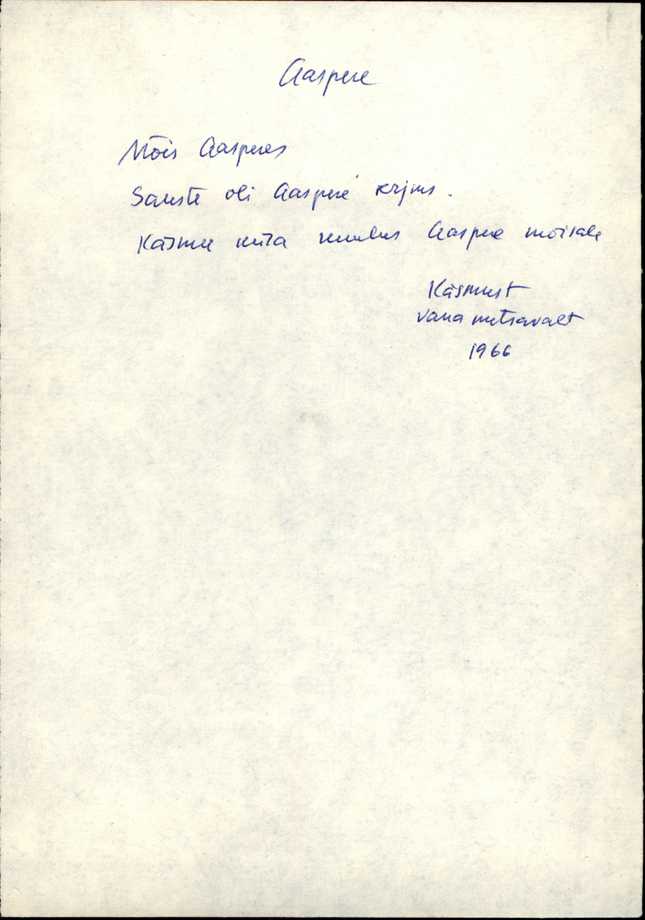 Aaspere
Mõis Aasperes
Sauste oli Aaspere
Käsmu küla kuulus Aaspere mõisale
Käsmust
vana metsavaht
1966